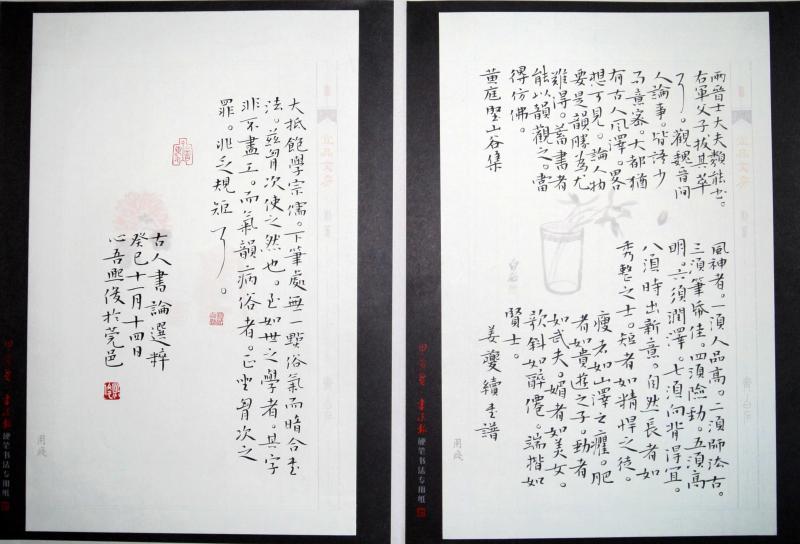 兩晉士大夫類能書。
右軍父子拔其萃
了。觀魏晉間
人論事。皆語少
而意密。大都猶
有古人風澤。略
想可見。論人物
要是韻勝為尤
難得。蓄書者
能以韻觀之。當
得仿佛。
黄庭堅山谷集
風神者。一須人品高。二須師法古。
三須筆紙佳。四須險勁。五須高
明。六須潤澤。七須向背得宜。
八須時出新意。自然長者如
秀整之士。短者如精悍之徒。
瘦者如山澤之癯。肥
者如貴遊之子。勁者
如武夫。媚者如美女。
欹斜如醉僊。端揩如
賢士。
姜夔續書譜
用笺
硬笔书法专用纸
大抵飽學宗儒。下筆處無一點俗氣而暗合書
法。茲胷次使之然也。至如世之學者。其字
非不盡工。而氣韻病俗者。正坐胷次之
罪。非乏規矩了。
古人書論選粹
癸巳十一月十四日
心吾熙俊於莞邑
用笺
硬笔书法专用纸